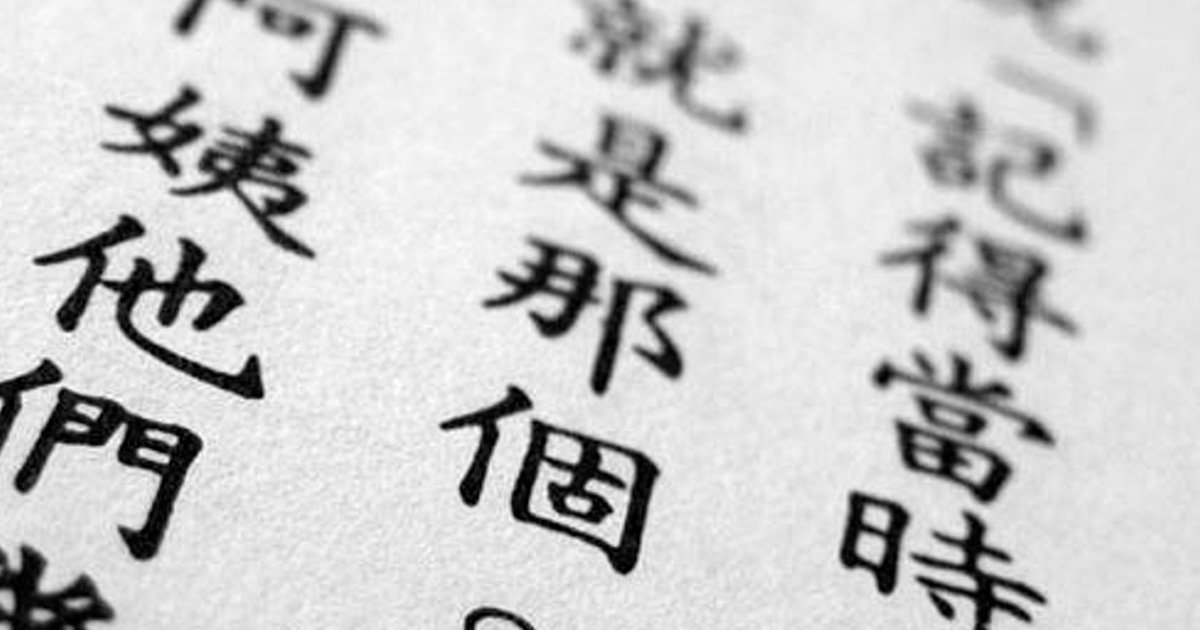 「記得當時
就是那個
阿姨他們